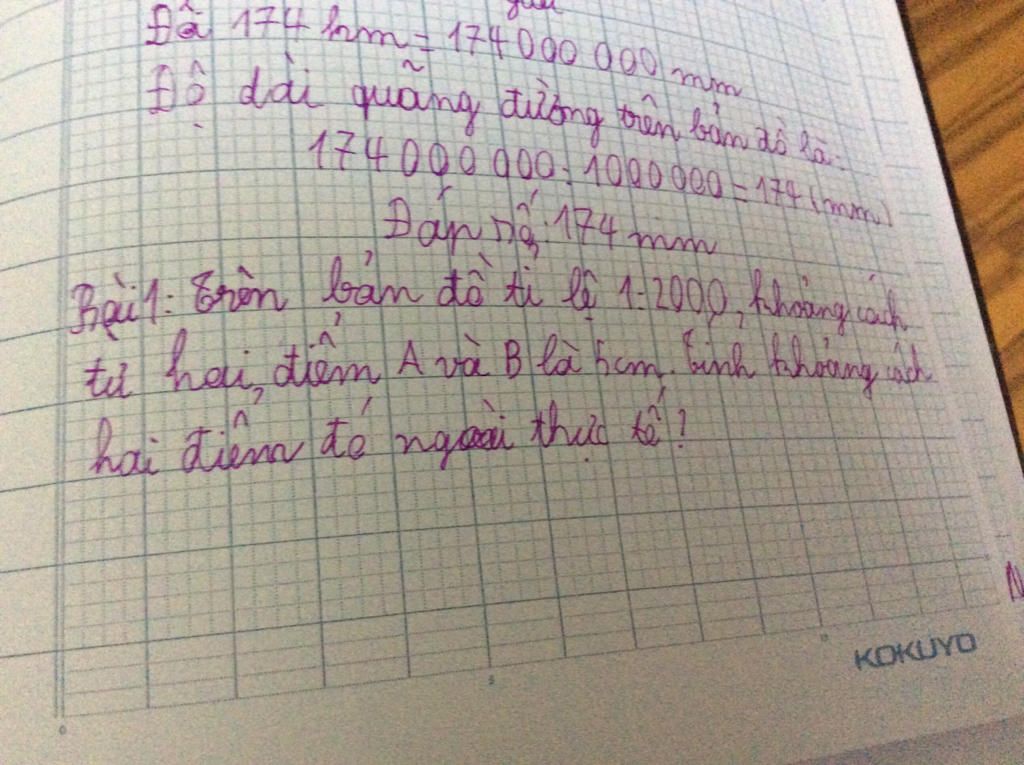 Đổi 174 km = 174 000 000 mm
Độ dài quãng đường trên bản đồ là:
174 000 000 : 1000 000 = 174 (mm)
Đáp số: 174 mm
Bài 1: Trên bản đồ tỉ lệ 1:2000, khoảng cách
từ hai điểm A và B là 5cm. Tính khoảng cách
hai điểm đó ngoài thực tế?
KOKUYO